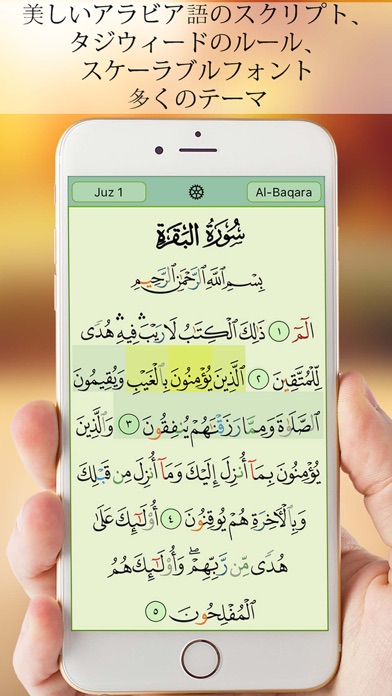 美しいアラビア語のスクリプト、
タジウィードのルール、
スケーラブルフォント
多くのテーマ
Juz 1
Al-Baqara
سُورَةُ البَقَرَةِ
بِسْمِ ٱللَّهِ ٱلرَّحْمَٰنِ ٱلرَّحِيمِ
الٓمٓ ١ ذَٰلِكَ ٱلْكِتَٰبُ لَا رَيْبَ ۛ فِيهِ ۛ هُدًى
لِّلْمُتَّقِينَ ٢ ٱلَّذِينَ يُؤْمِنُونَ بِٱلْغَيْبِ وَيُقِيمُونَ
ٱلصَّلَوٰةَ وَمِمَّا رَزَقْنَٰهُمْ يُنفِقُونَ ٣ وَٱلَّذِينَ
يُؤْمِنُونَ بِمَآ أُنزِلَ إِلَيْكَ وَمَآ أُنزِلَ مِن قَبْلِكَ
وَبِٱلْءَاخِرَةِ هُمْ يُوقِنُونَ ٤ أُو۟لَٰٓئِكَ عَلَىٰ
هُدًى مِّن رَّبِّهِمْ ۖ وَأُو۟لَٰٓئِكَ هُمُ
ٱلْمُفْلِحُونَ ٥